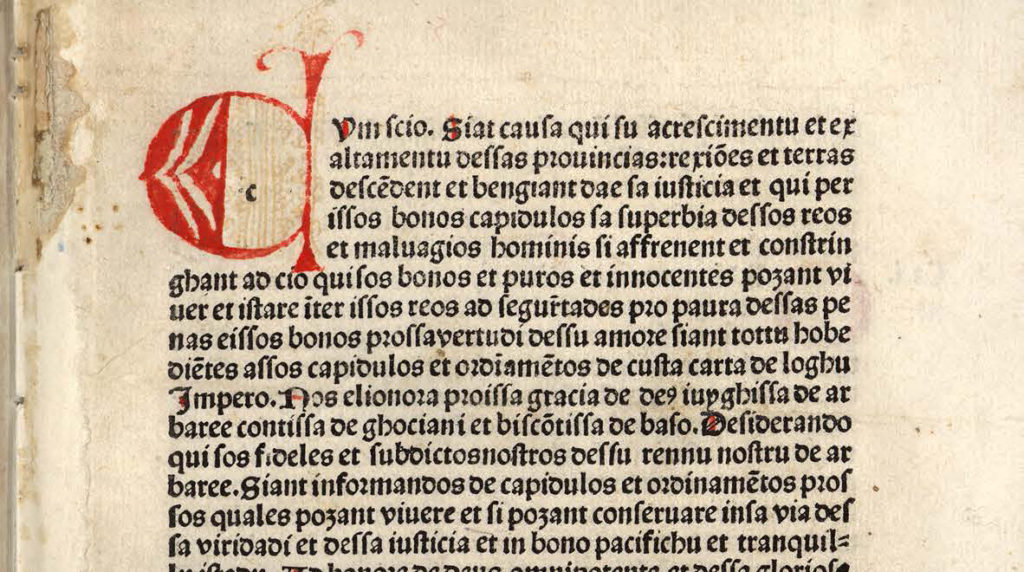 Cvm scio. Siat causa qui su acrescimentu et ex
altamentu dessas prouincias: rexiões et terras
descẽdent et bengiant dae sa iusticia et qui per
issos bonos capidulos sa superbia dessos reos
et maluagios hominis si affrenent et constrin
ghant ad cio qui sos bonos et puros et innocentes pozant vi
uer et istare ĩter issos reos ad segur̃tades pro paura dessas pe
nas eissos bonos prossavertudi dessu amore siant tottu hobe
diẽtes assos capidulos et ordiamẽtos de custa carta de loghu
Impero. Nos elionora proissa gracia de deꝯ iuyghissa de ar
baree contissa de ghociani et biscõtissa de baso. Desiderando
qui sos fideles et subdictos nostros dessu rennu nostru de ar
baree. Siant informandos de capidulos et ordinamẽtos pros
sos quales pozant viuere et si pozant conseruare insa via des
sa viridadi et dessa iusticia et in bono pacifichu et tranquil=